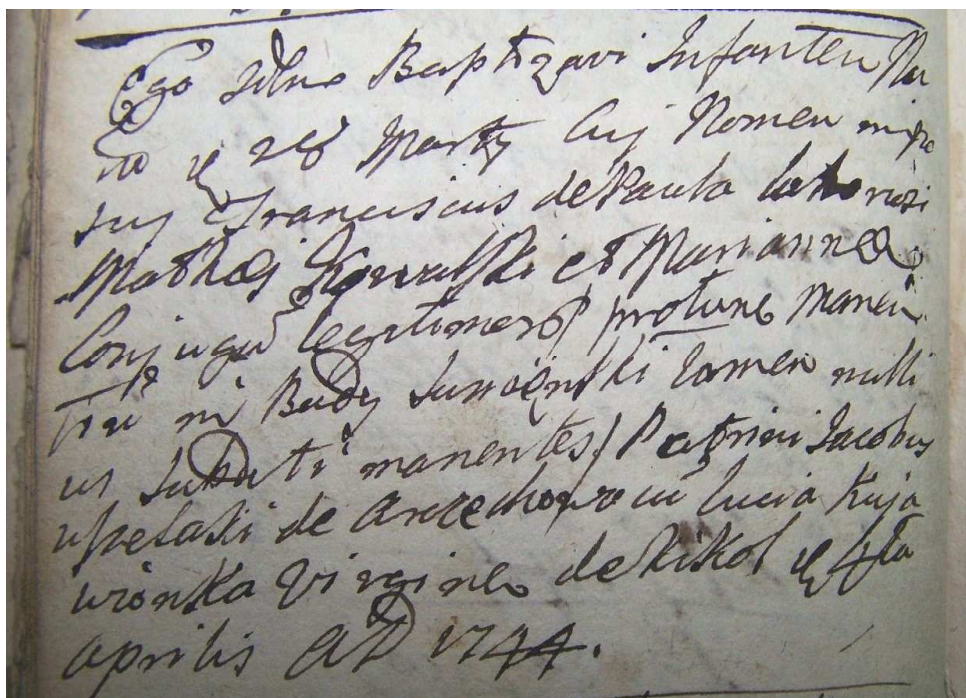 Ego Baptizavi Infantem Na
to 28 Martij Cuj Nomen impo
suj Franciscus de Paula
Mathej Kowalski et Marianna
Conjugu legitimoru protunc manen
tiu in Budy tamen nulli
us subditi manentes / Patrini Jacobus
de cu Lucia Kuja
wionka Virgine de Kikol 4ta
aprilis AD 1744.